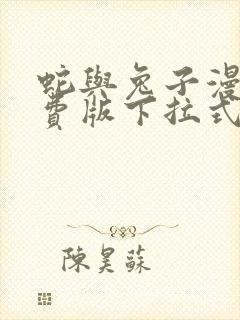 蛇與兔子漫
費版下拉式
陳昊蘇